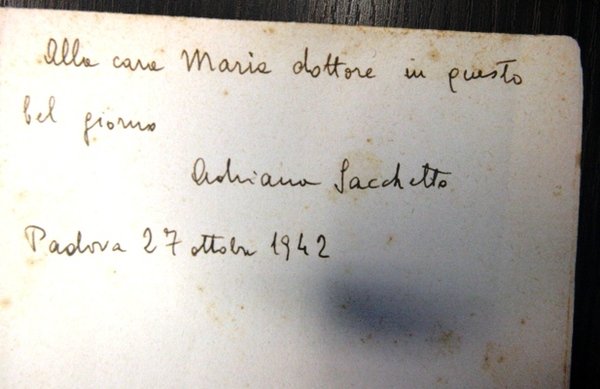 Alla cara Maria dottore in questo
bel giorno
Adriana Sacchetto
Padova 27 ottobre 1942